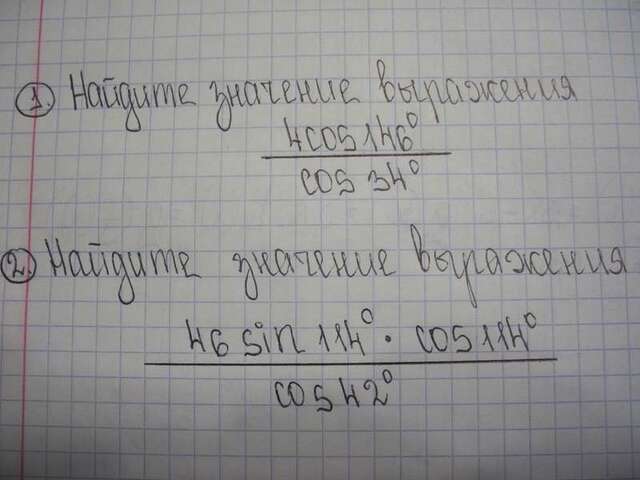 1. Найдите значение выражения
4cos146°
cos 34°
2. Найдите значение выражения
46 sin 114° · cos 114°
cos 42°